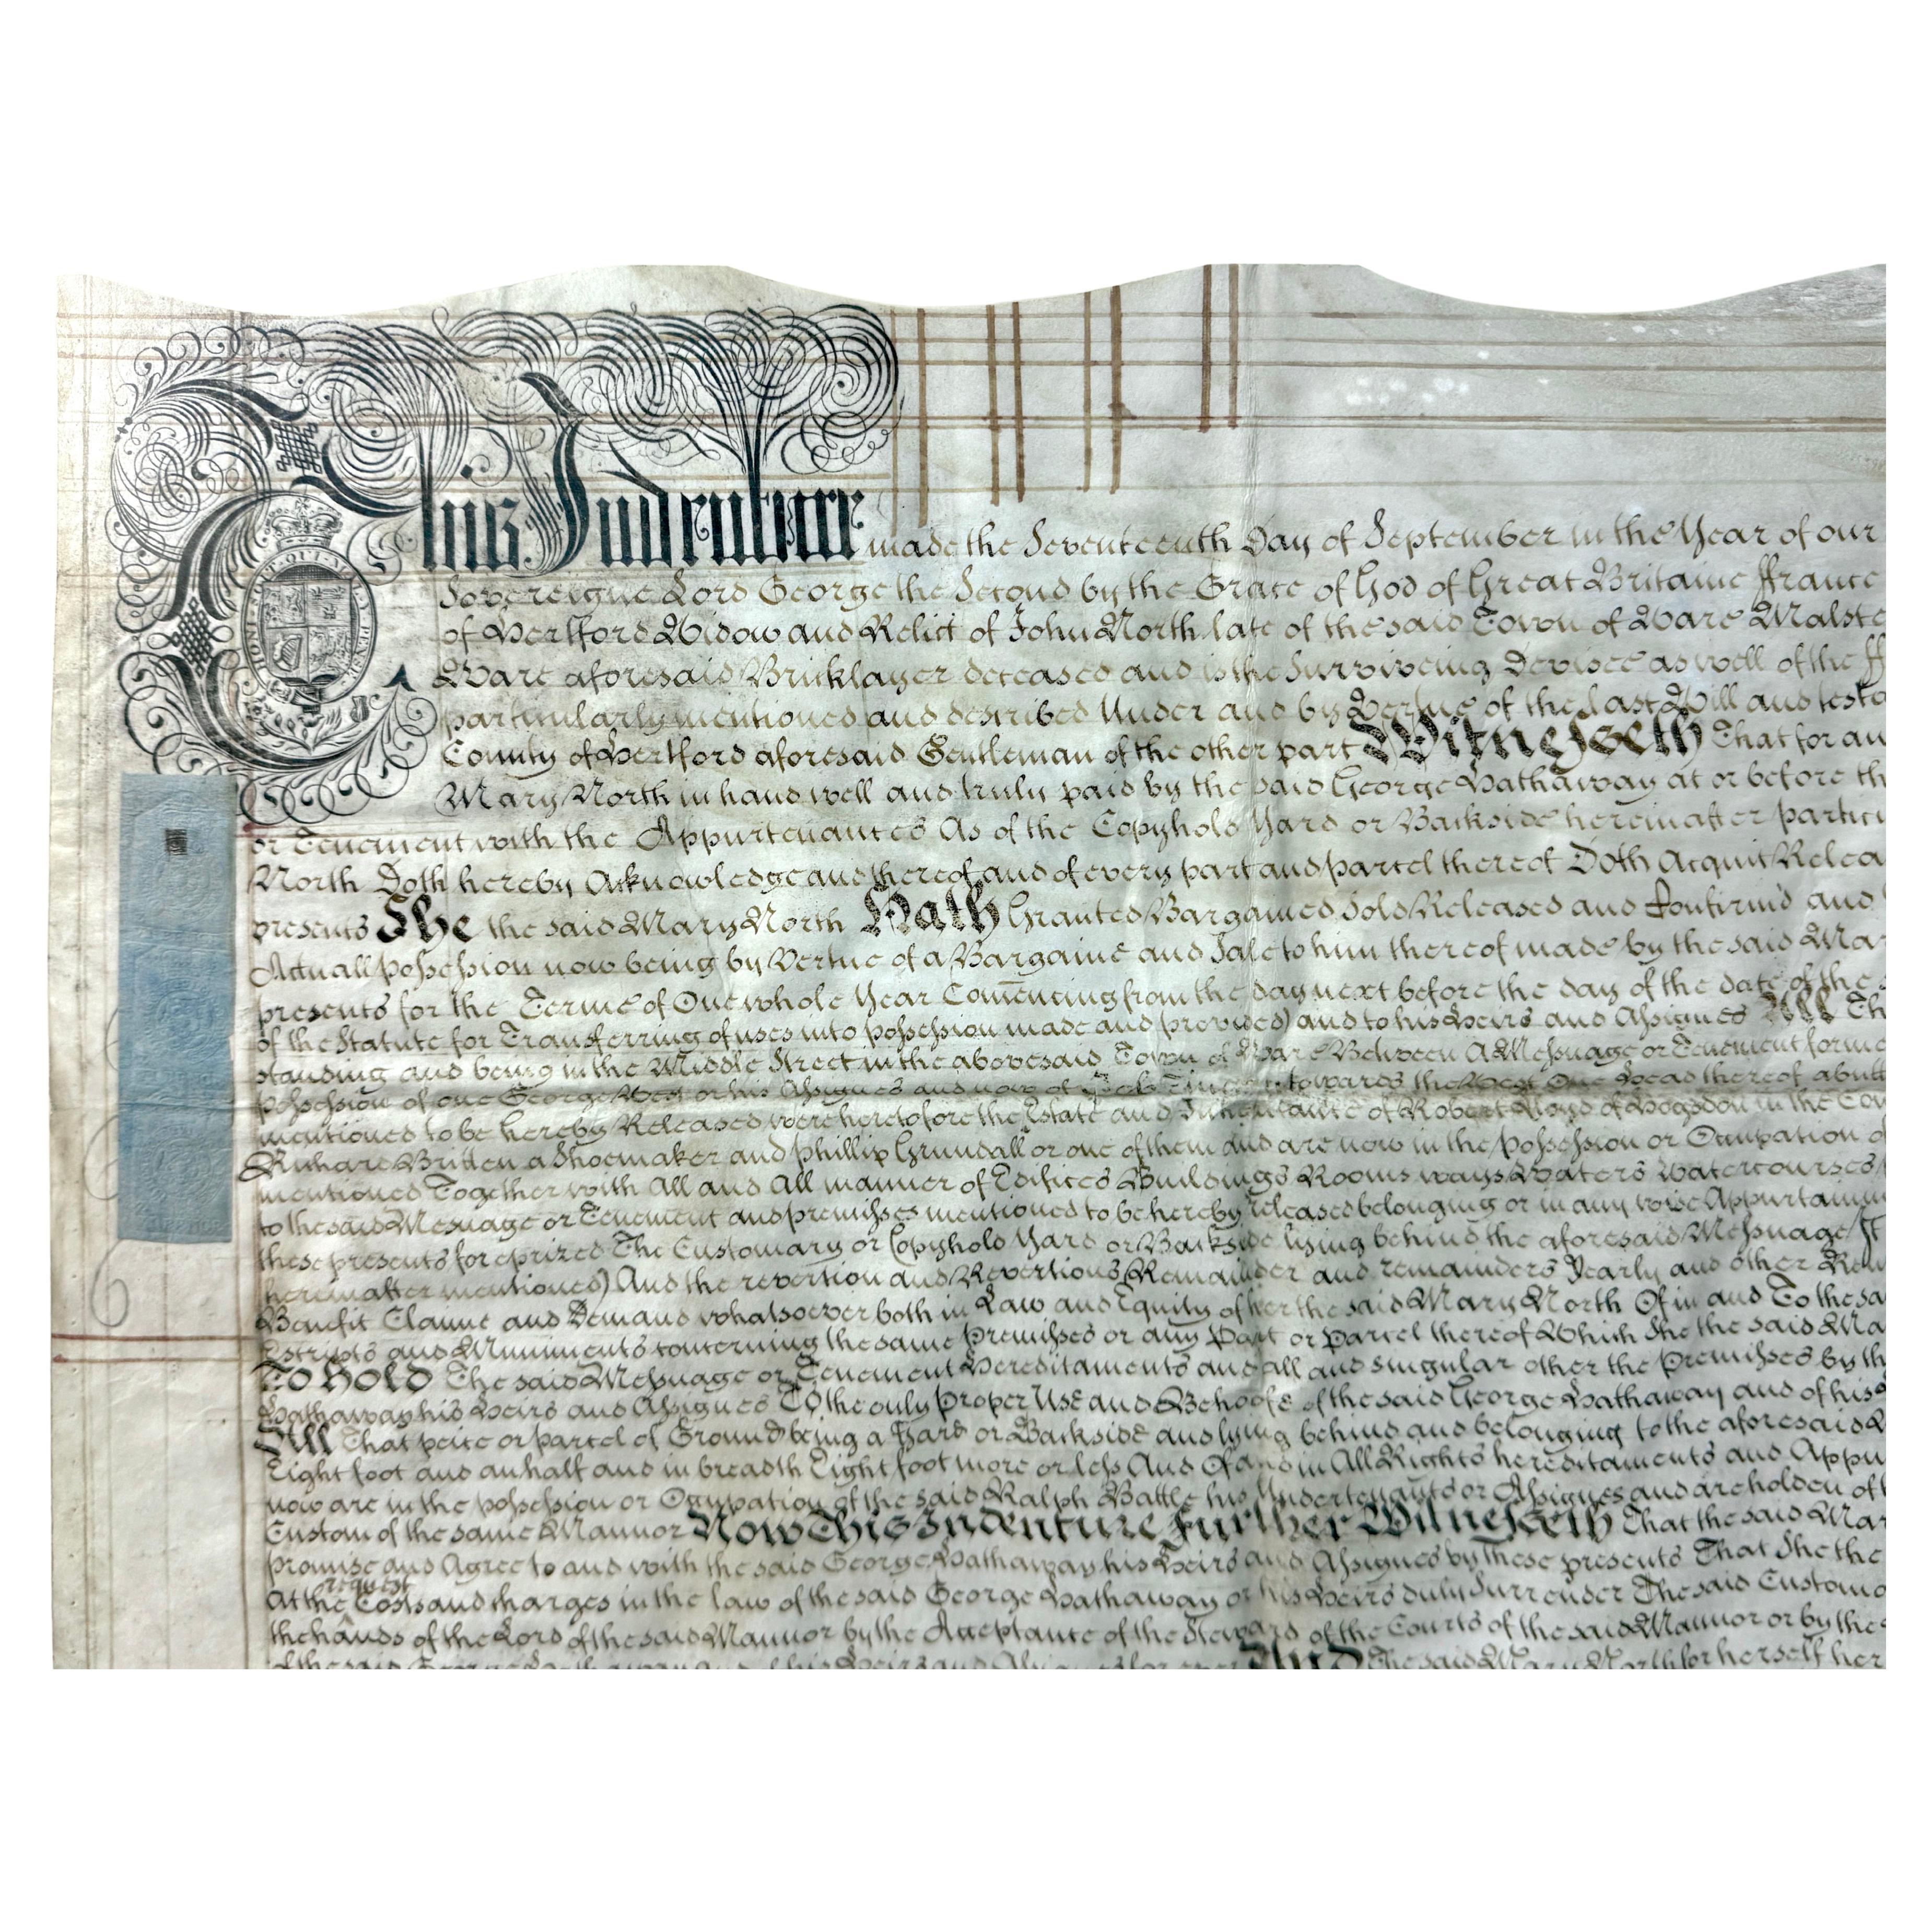 This Indenture made the Seventeenth Day of September in the Year of our
Sovereigne Lord George the Second by the Grace of God of Great Britaine ffrance
of Hertford Widow and Relict of John North late of the said Town of Ware Malste
Ware aforesaid Bricklayer deceased and is the Surviveing Devisee as well of the ff
particularly mentioned and described Under and by Vertue of the last Will and testa
County of Hertford aforesaid Gentleman of the other part Witnesseth That for an
Mary North in hand well and truly paid by the said George Hathaway at or before th
or Tenement with the Appurtenances As of the Copyhold Yard or Backside hereinafter particu
North Doth hereby Acknowledge and thereof and of every part and parcel thereof Doth Acquit Relea
presents She the said Mary North Hath Granted Bargained Sold Released and Confirm'd and
Actuall possession now being by Vertue of a Bargaine and Sale to him thereof made by the said Mar
presents for the Terme of One whole Year Comencing from the day next before the day of the date of the
of the Statute for Transferring of uses into possession made and provided) and to his Heirs and Assignes All Th
standing and being in the Middle Street in the abovesaid Town of Ware Between A Messuage or Tenement forme
possession of one George West or his Assignes and now of towards the West One head thereof abutt
mentioned to be hereby Released were heretofore the Estate and Inheritance of Robert of Hogsdon in the Cou
Richard Britten a Shoemaker and Phillip Grundall or one of them and are now in the possession or Occupation o
mentioned Together with All and All manner of Edifices Buildings Rooms ways Waters Watercourses
to the said Messuage or Tenement and premisses mentioned to be hereby released belonging or in any wise Appurtaining
these presents foreprized The Customary or Copyhold Yard or Backside lying behind the aforesaid Messuage
hereinafter mentioned) And the revertion and Revertions Remainder and remainders Yearly and other Ren
Benefit Claime and Demand whatsoever both in Law and Equity of her the said Mary North Of in and To the sa
Escripts and Muniments concerning the same Premisses or any Part or Parcel thereof Which She the said Ma
To Hold The said Messuage or Tenement Hereditaments and all and singular other the Premisses by th
Hathaway his Heirs and Assignes To the only Proper Use and Behoofe of the said George Hathaway and of his
All That peice or parcel of Ground being a Yard or Backside and lying behind and belonging to the aforesaid
Eight foot and an half and in breadth Eight foot more or less And Of and in All Rights hereditaments and Appu
now are in the possession or Occupation of the said Ralph Battle his Undertenants or Assignes and are holden of t
Custom of the same Mannor Now This Indenture Further Witnesseth That the said Mar
promise and Agree to and with the said George Hathaway his Heirs and Assignes by these presents That She the
request
At the Costs and charges in the law of the said George Hathaway or his Heirs duly Surrender The said Customa
the hands of the Lord of the said Mannor by the Acceptance of the Steward of the Courts of the said Mannor or by the
of the said George Hathaway and his Heirs and Assignes for ever And The said Mary North for herself her